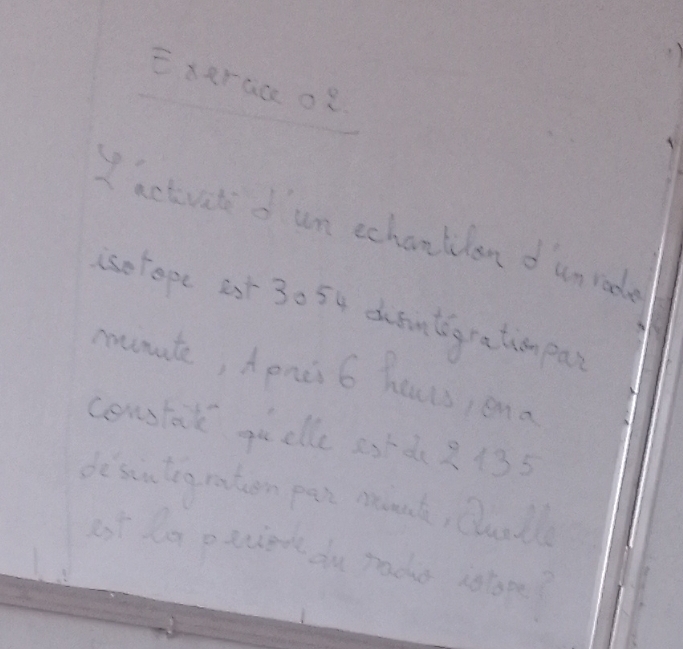 Exercice 02.
L'activité d'un echantilon d'un radio
isotope est 3054 disintégration par
minute, Après 6 heurs, on a
constaté qu'elle est de 2135
désintégration par minute, Quelle
est la periode du radio isotope?